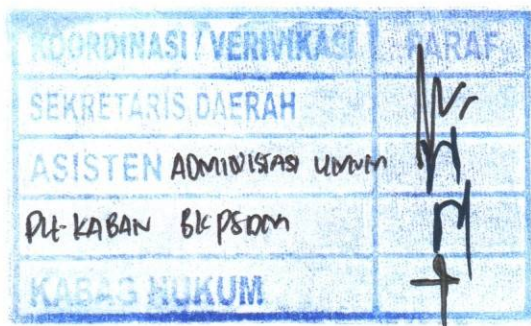 KOORDINASI / VERIVIKASI PARAF
SEKRETARIS DAERAH
ASISTEN ADMINISTASI UMUM
PLT-KABAN BKPSDM
KABAG HUKUM